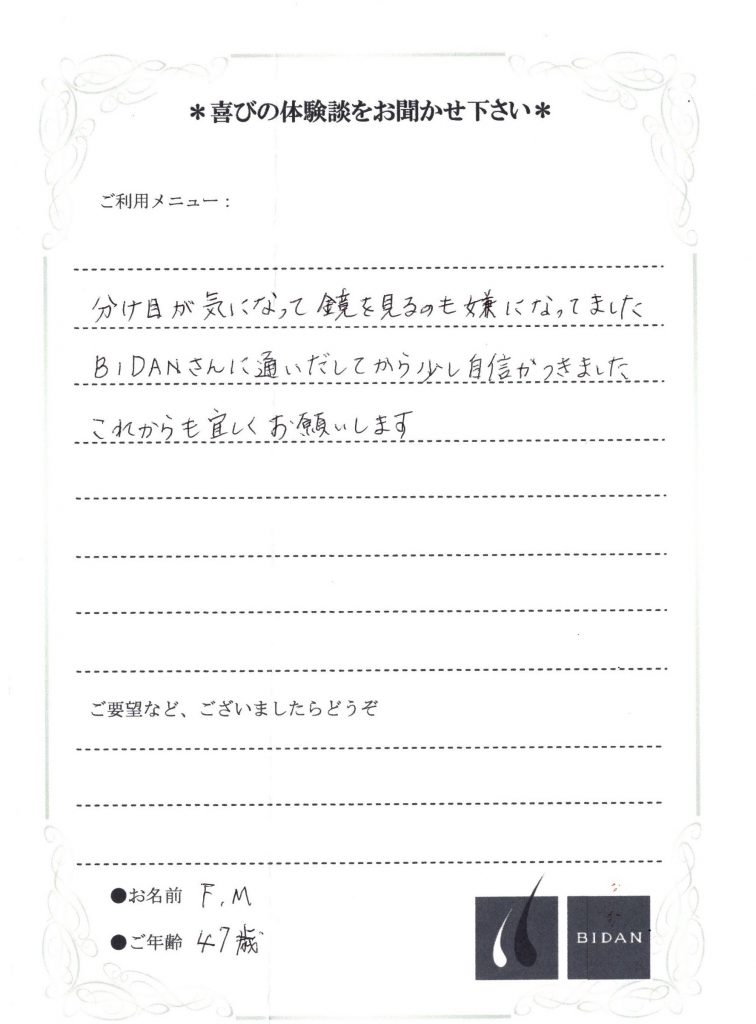 ＊喜びの体験談をお聞かせ下さい＊
ご利用メニュー：
分け目が気になって鏡を見るのも嫌になってました
BIDANさんに通いだしてから少し自信がつきました
これからも宜しくお願いします
ご要望など、ございましたらどうぞ
●お名前 F.M
●ご年齢 47歳
BIDAN